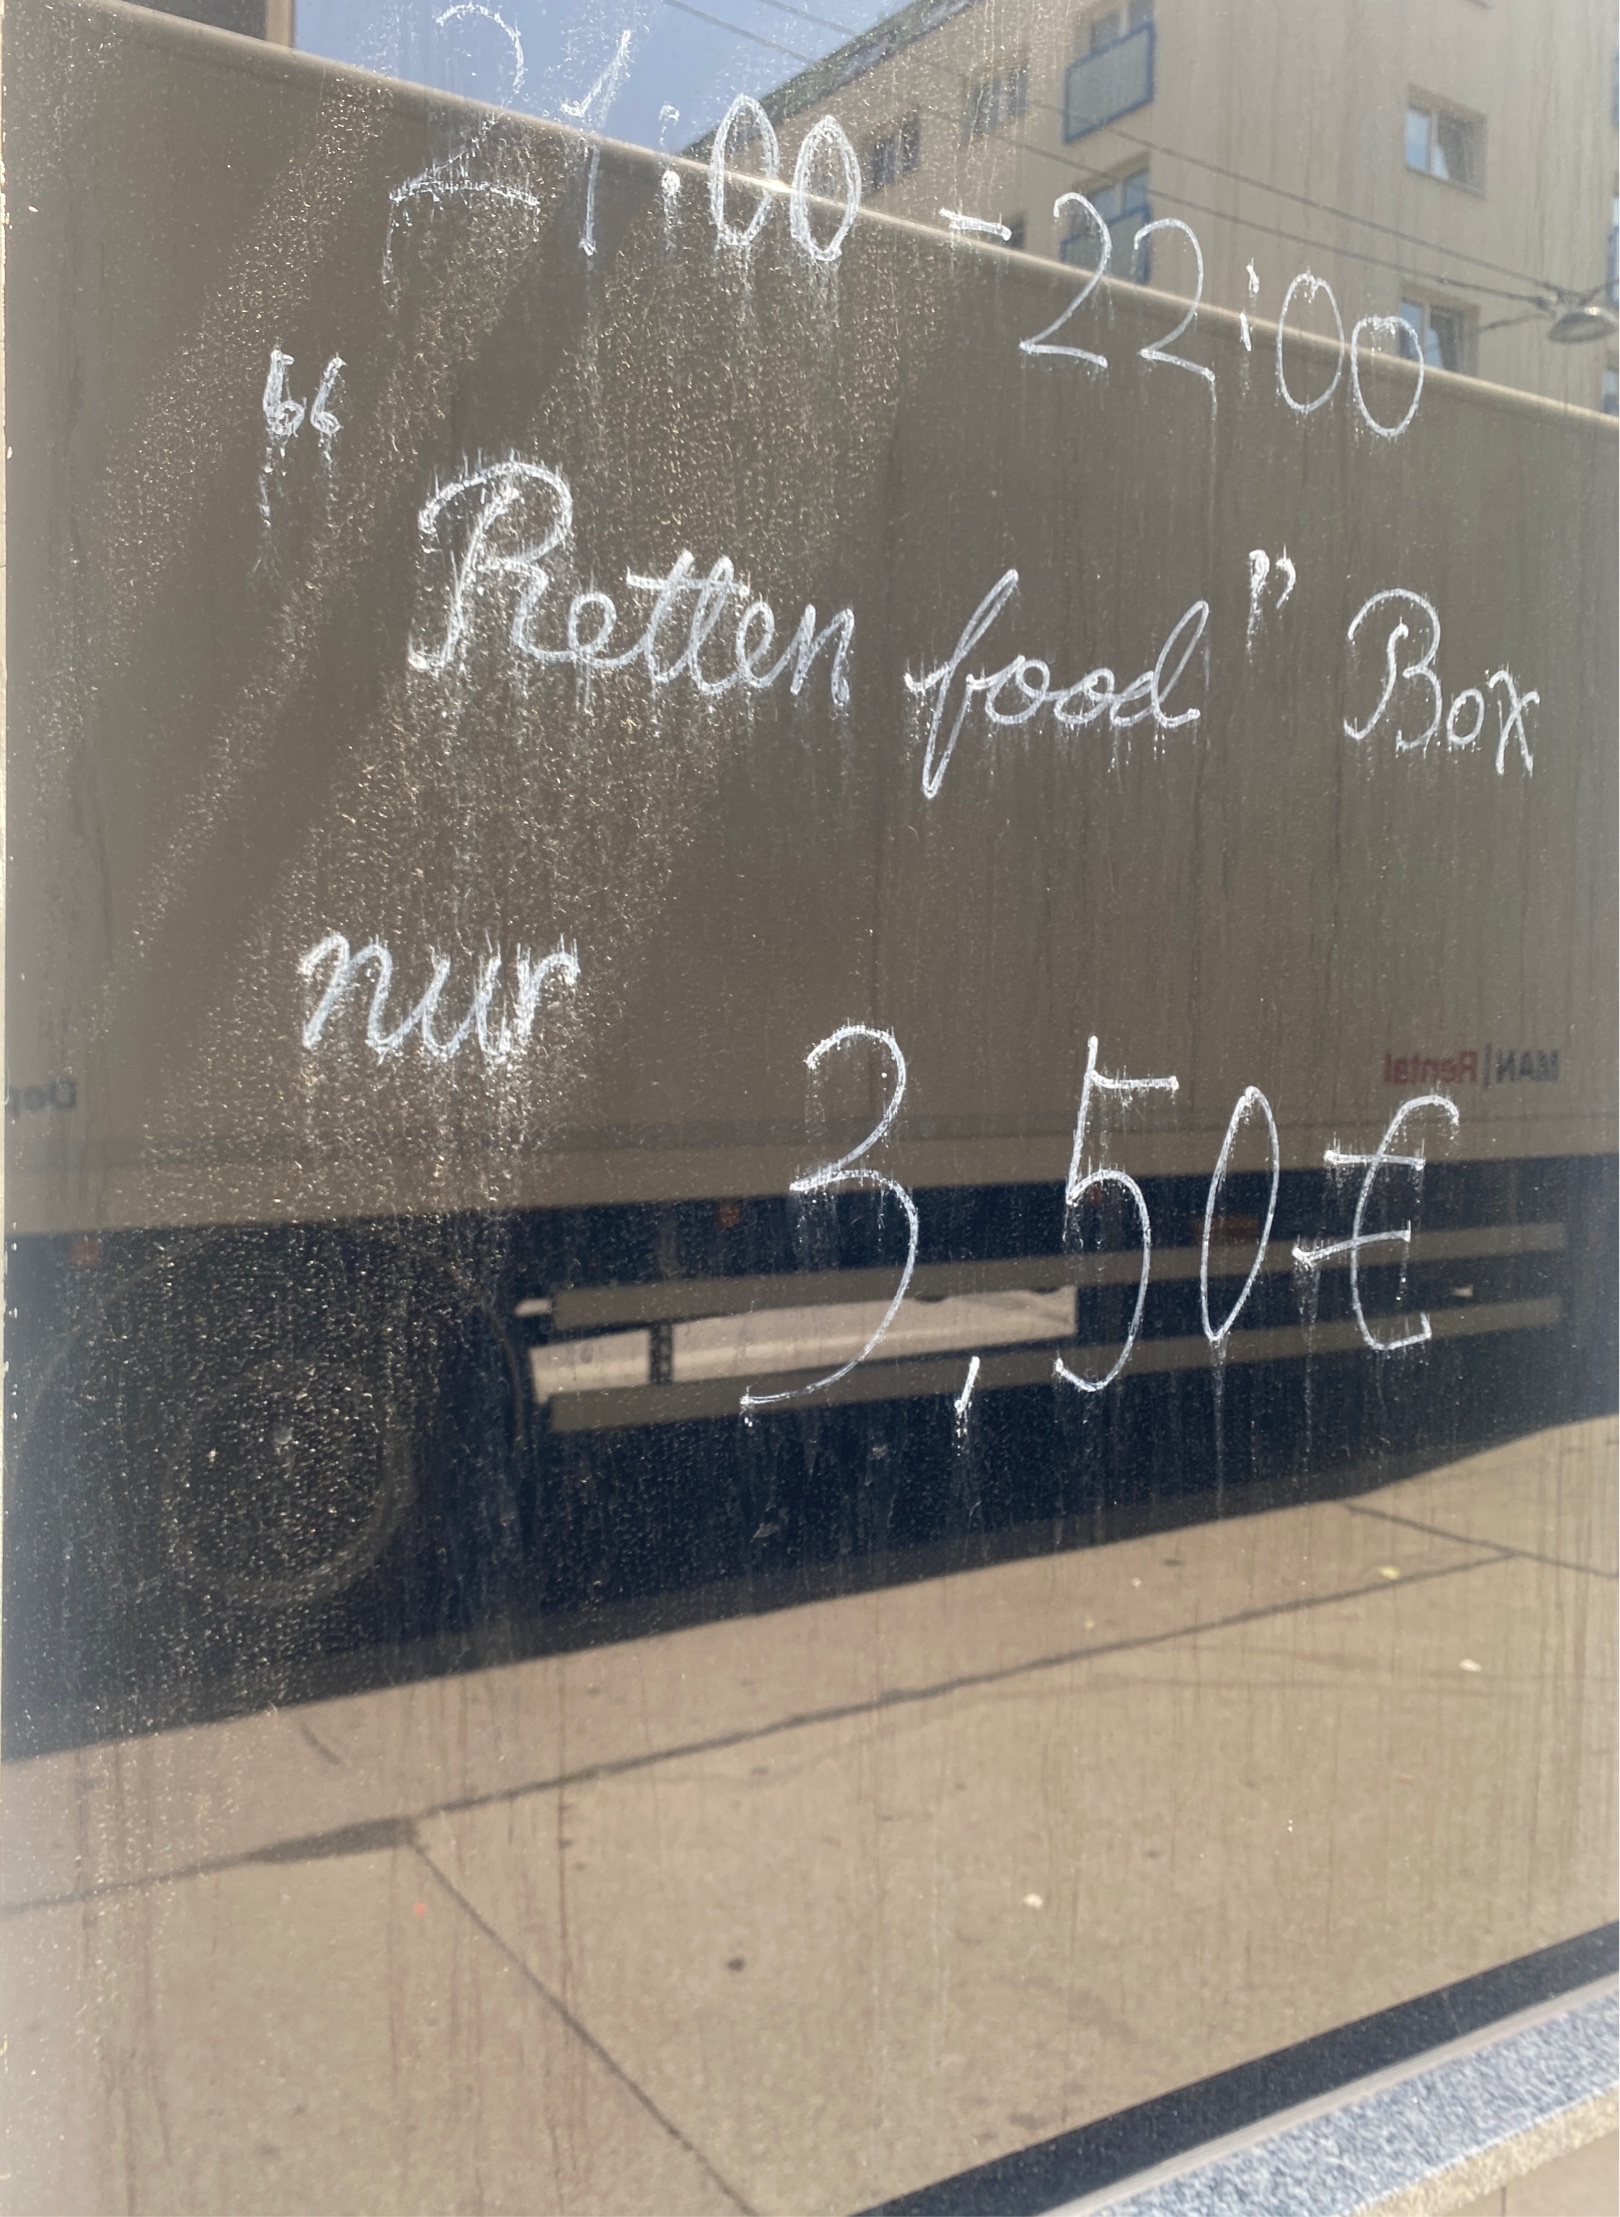 21:00 - 22:00
“Retten food” Box
nur
3,50€
MAN|Rental